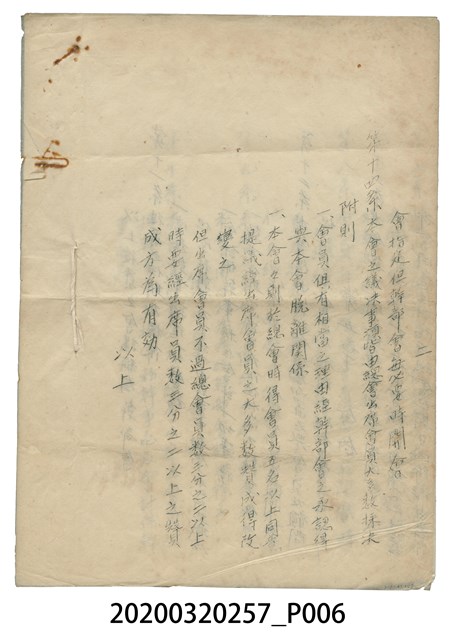 會指定但幹部會每必要時開會
第十四條大會之議決事項皆由總會出席會員大多数採決
附則
一、會員俱有相當之理由經幹部會之承認得
與本會脫離關係
一、本會々則於總會時得會員五名以上同
提議經出席會員之大多数賛成得改
變之
但出席會員不過總會員数三分之二以上
時要經出席員数三分之二以上之賛
成方為有効
以上
二
20200320257_P006